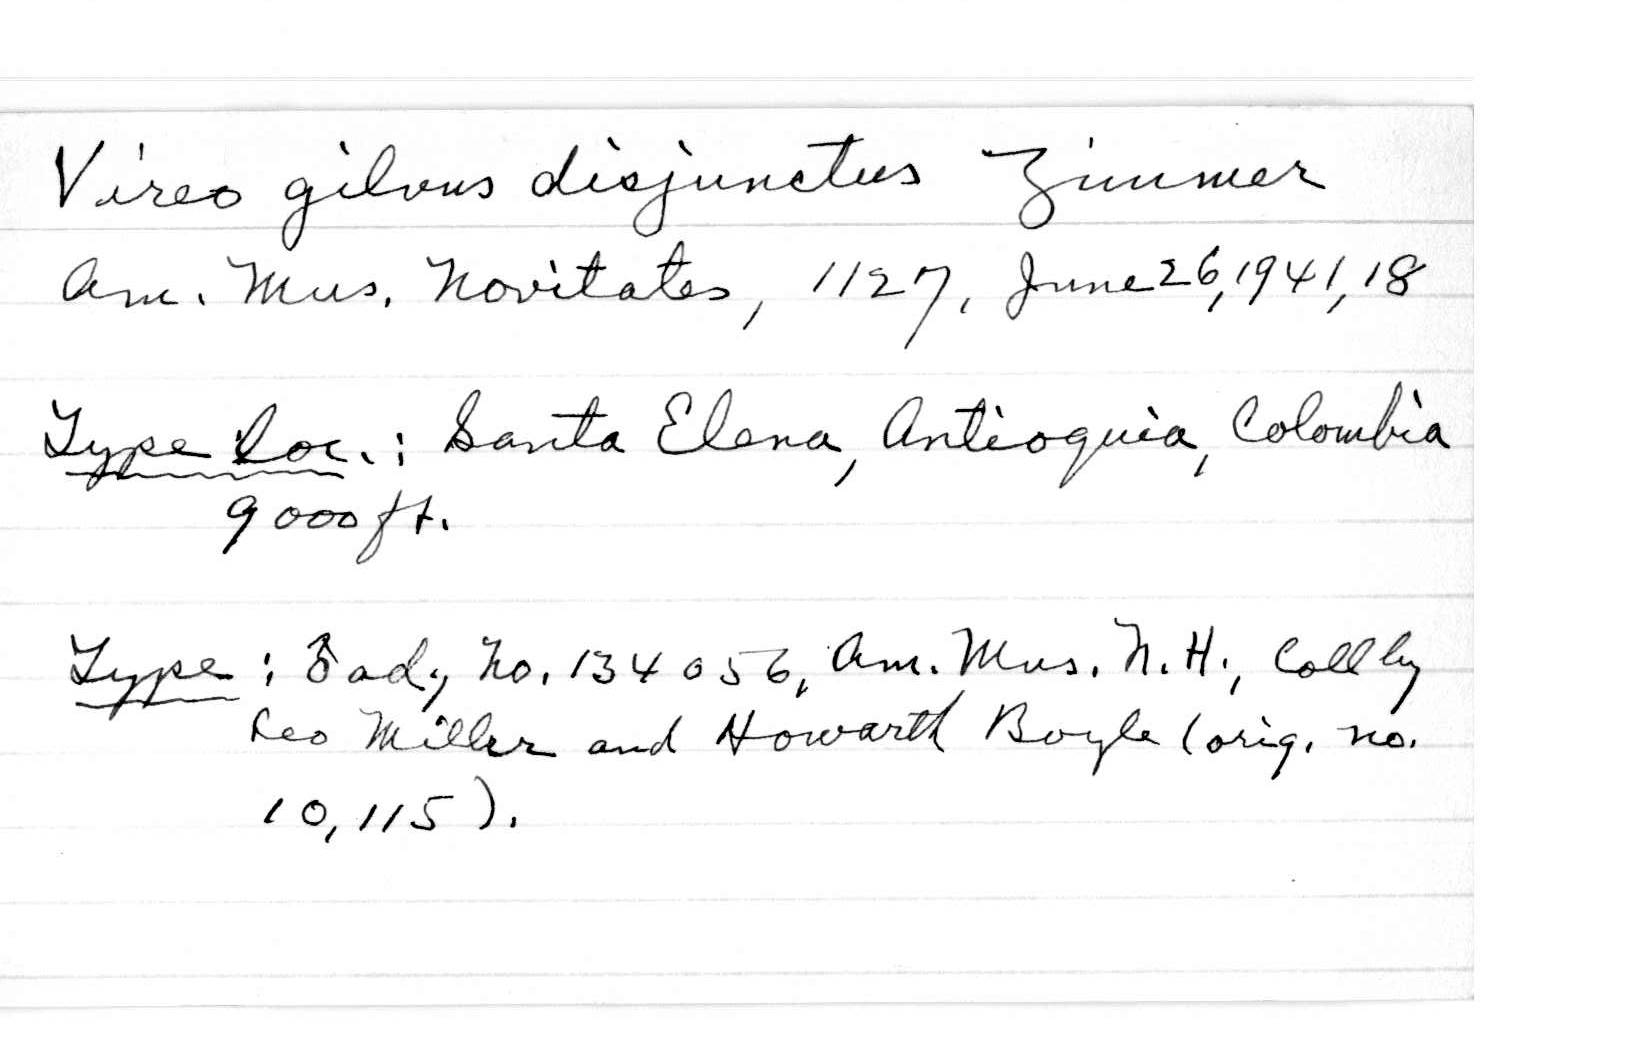 Vireo gilvus disjunctus Zimmer
Am. Mus. Novitates, 1127, June 26, 1941, 18
Type loc.: Santa Elena, Antioquia, Colombia
9000 ft.
Type: ♂ ad., no. 134056, Am. Mus. N. H., Coll by
Leo Miller and Howarth Boyle (orig. no.
10,115).